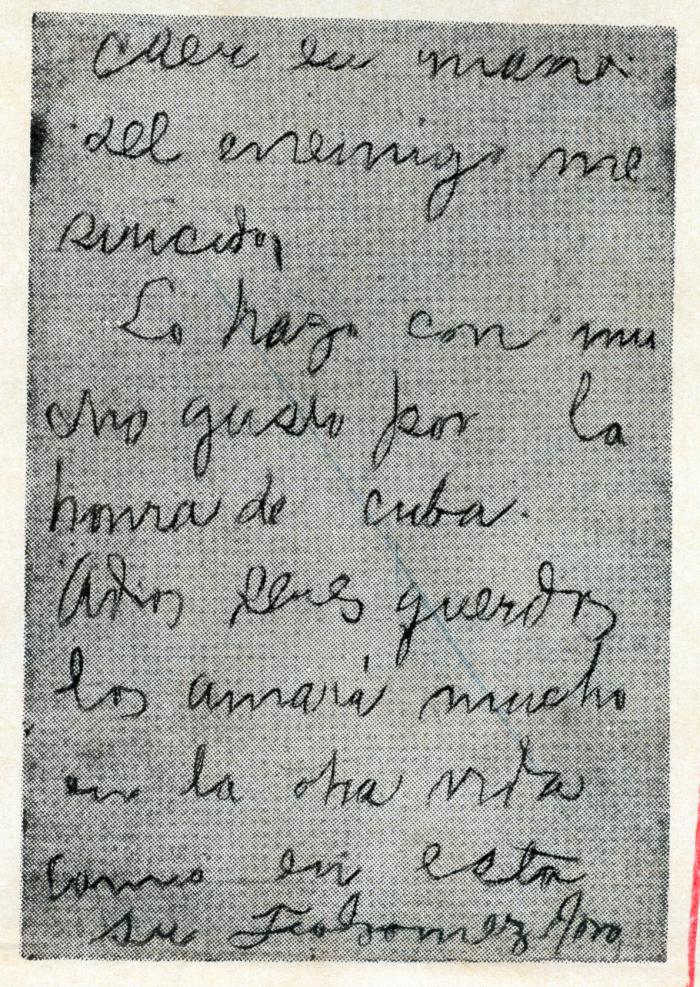 caer en manos
del enemigo me
suicido,
Lo hago con mu
cho gusto por la
honra de cuba.
Adios seres queridos
los amará mucho
en la otra vida
como en esta
su Fco Gomez Toro